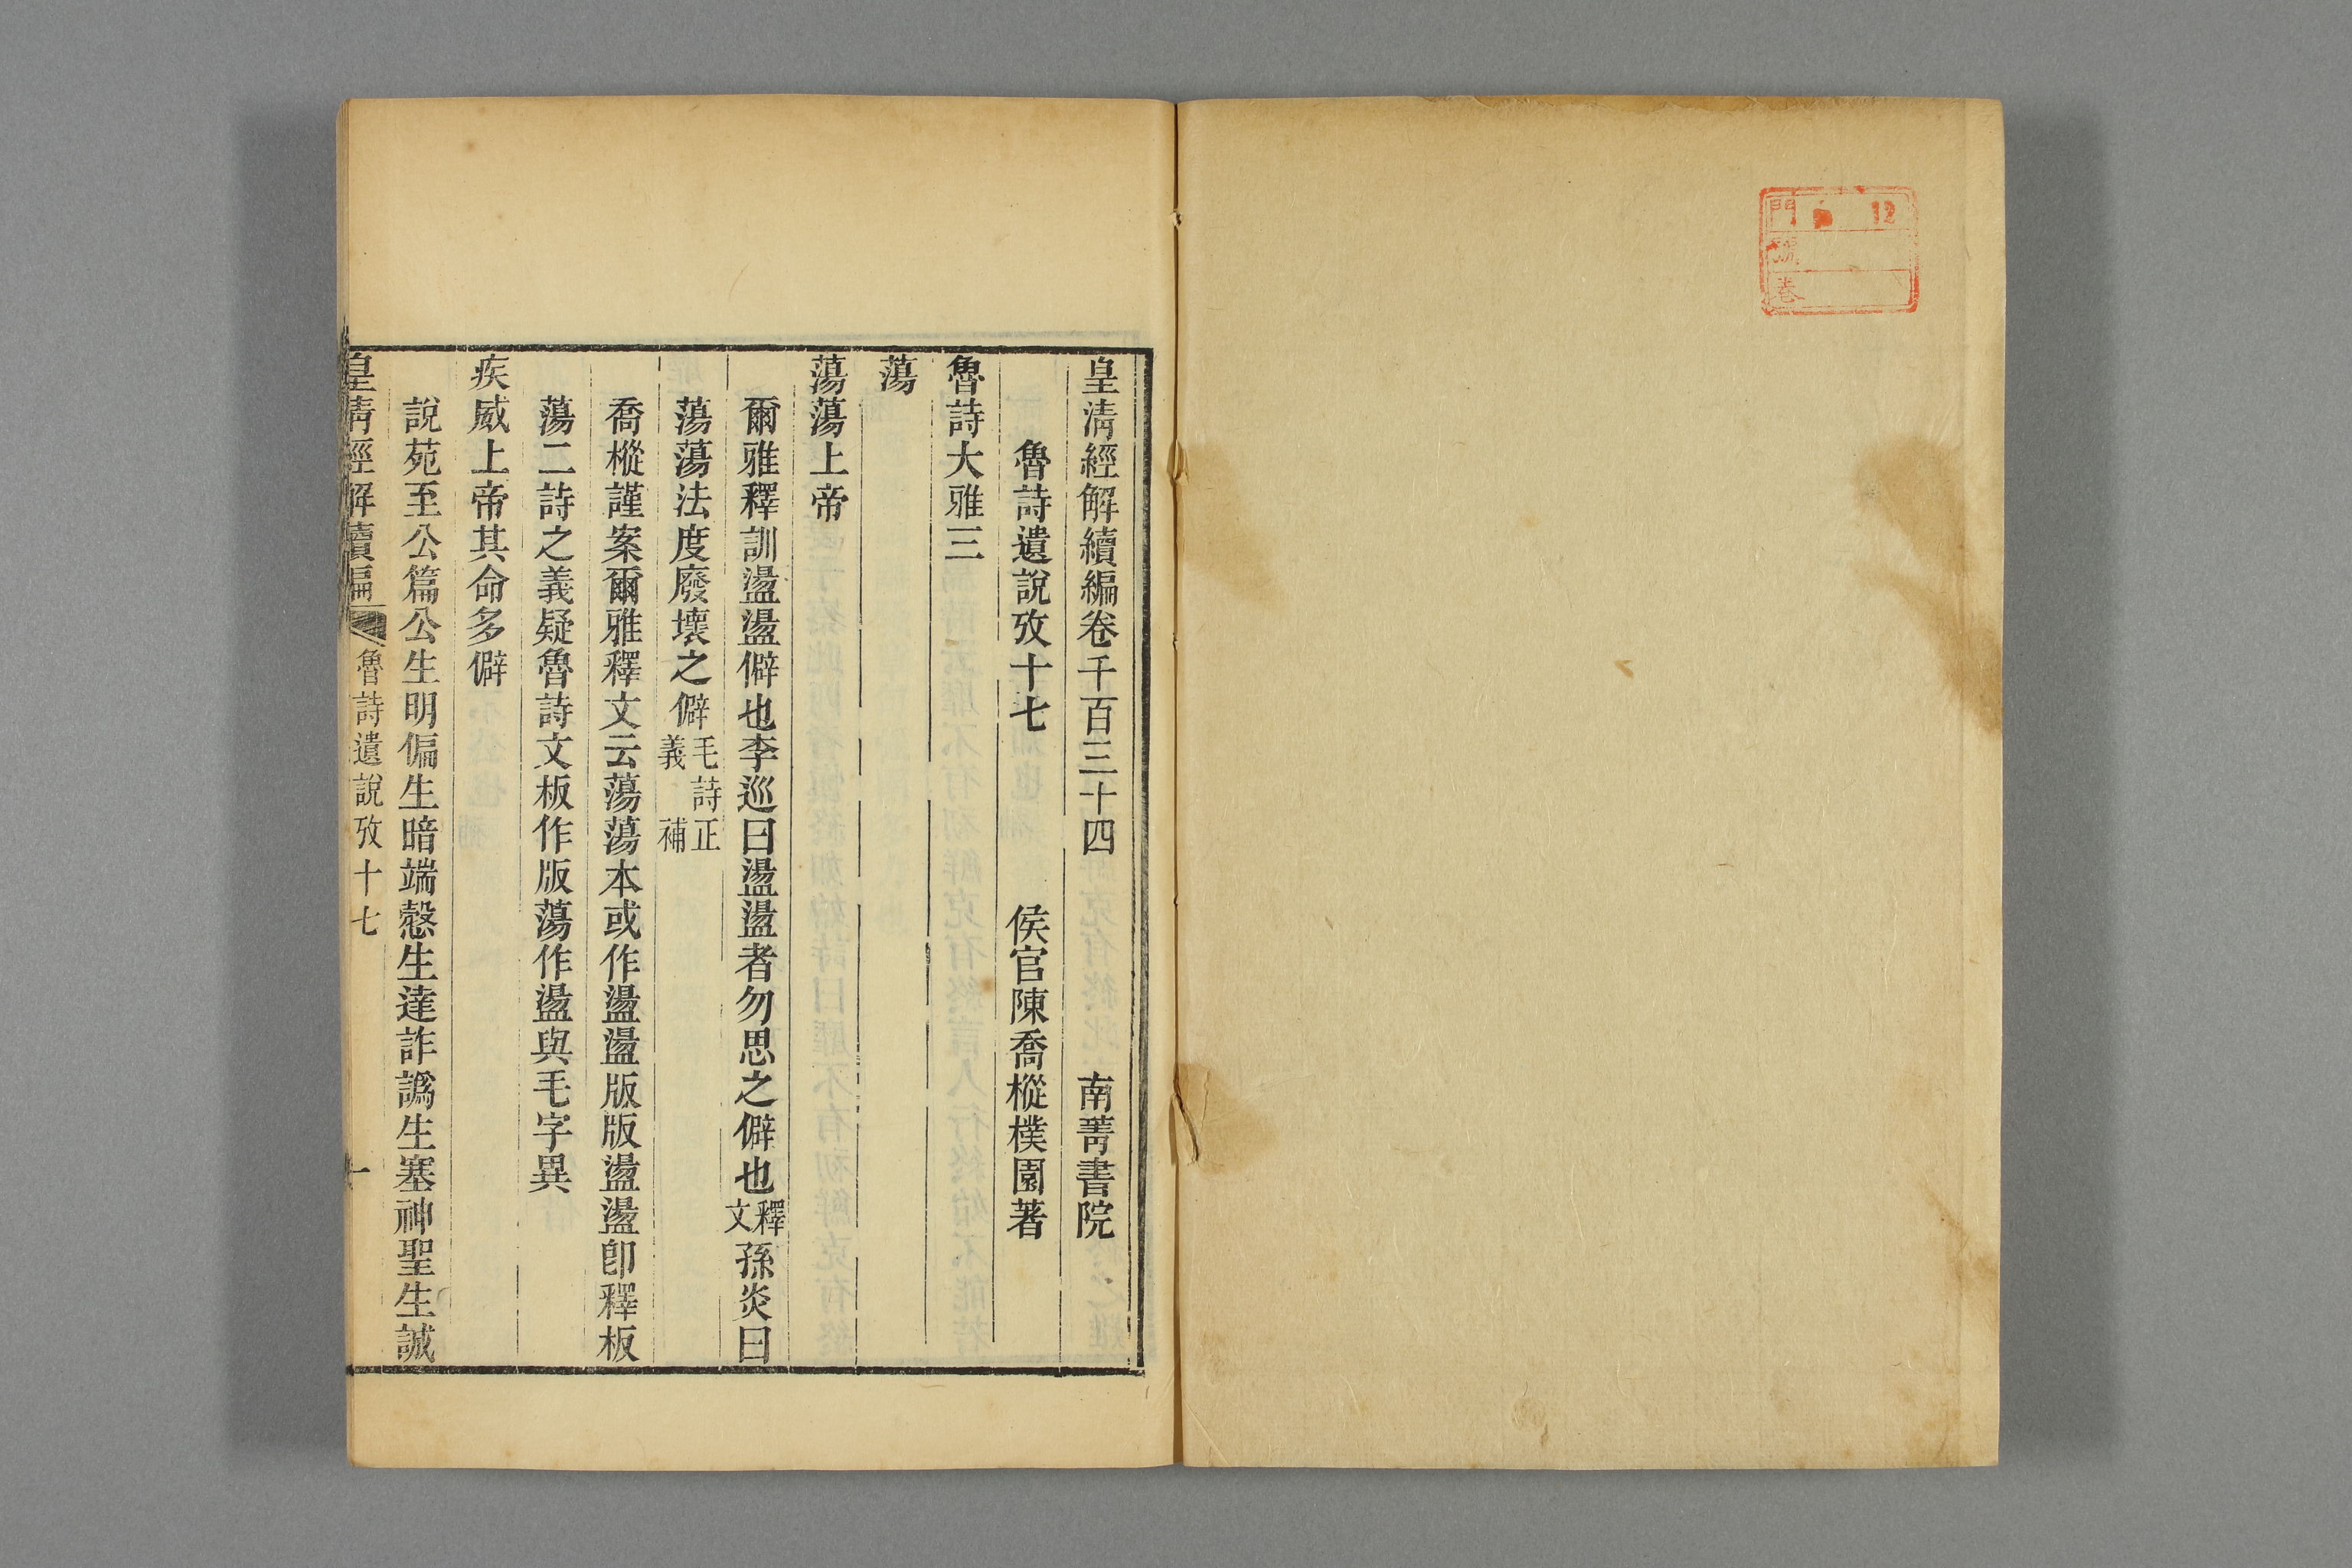 門 12
號
卷
皇清經解續編卷千百三十四 南菁書院
魯詩遺說攷十七 侯官陳喬樅樸園著
魯詩大雅三
蕩
蕩蕩上帝
爾雅釋訓盪盪僻也李巡曰盪盪者勿思之僻也釋文孫炎曰
蕩蕩法度廢壞之僻毛詩正義補
喬樅謹案爾雅釋文云蕩蕩本或作盪盪版版盪盪卽釋板
蕩二詩之義疑魯詩文板作版蕩作盪與毛字異
疾威上帝其命多僻
說苑至公篇公生明偏生暗端慤生達詐譌生塞神聖生誠
皇清經解續編 魯詩遺說攷十七 一